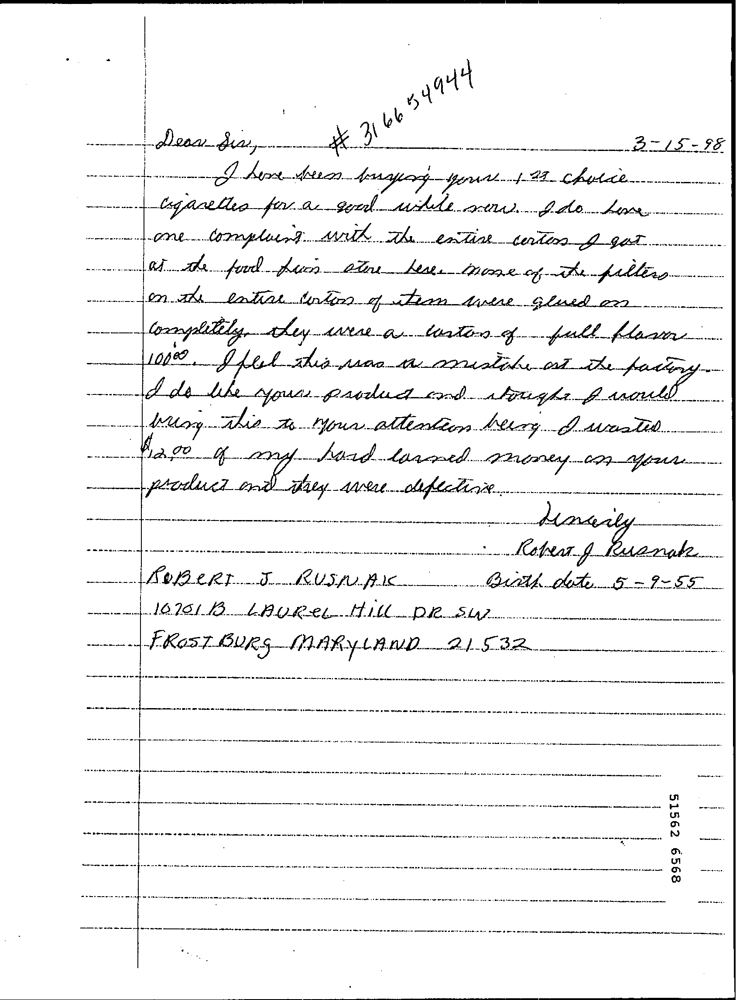 # 316654944
Dear Sir, 3-15-98
I have been buying your 1st choice
cigarettes for a good while now. I do have
one complaint with the entire carton I got
at the food lion store here. None of the filters
on the entire carton of item were glued on
completely. they were a carton of full flavor
100's. I feel this was a mistake at the factory.
I do like your product and thought I would
bring this to your attention being I wasted
$12.00 of my hard earned money on your
product and they were defective.
Sincerily
Robert J Rusnak
ROBERT J RUSNAK Birth date 5-9-55
10701 B LAUREL Hill DR SW
FROSTBURG MARYLAND 21532
51562 6568